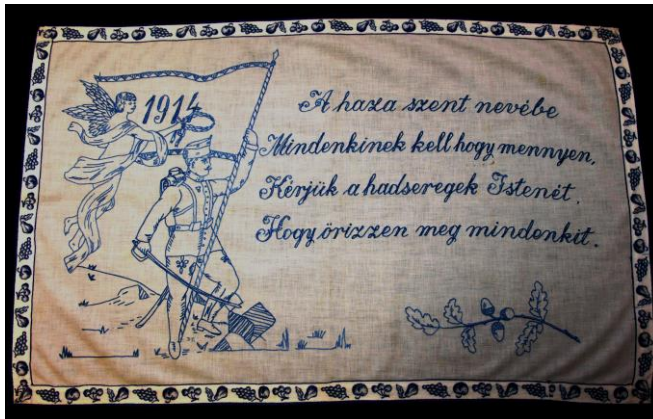 1914
A haza szent nevébe
Mindenkinek kell hogy mennyen,
Kérjük a hadseregek Istenét,
Hogy örizzen meg mindenkit.